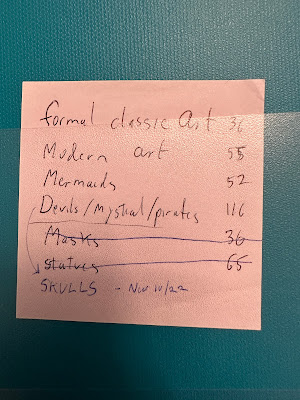 formal classic art 36
Modern art 55
Mermaids 52
Devils/mystical/pirates 116
Masks 36
statues 65
SKULLS - Nov 10/22